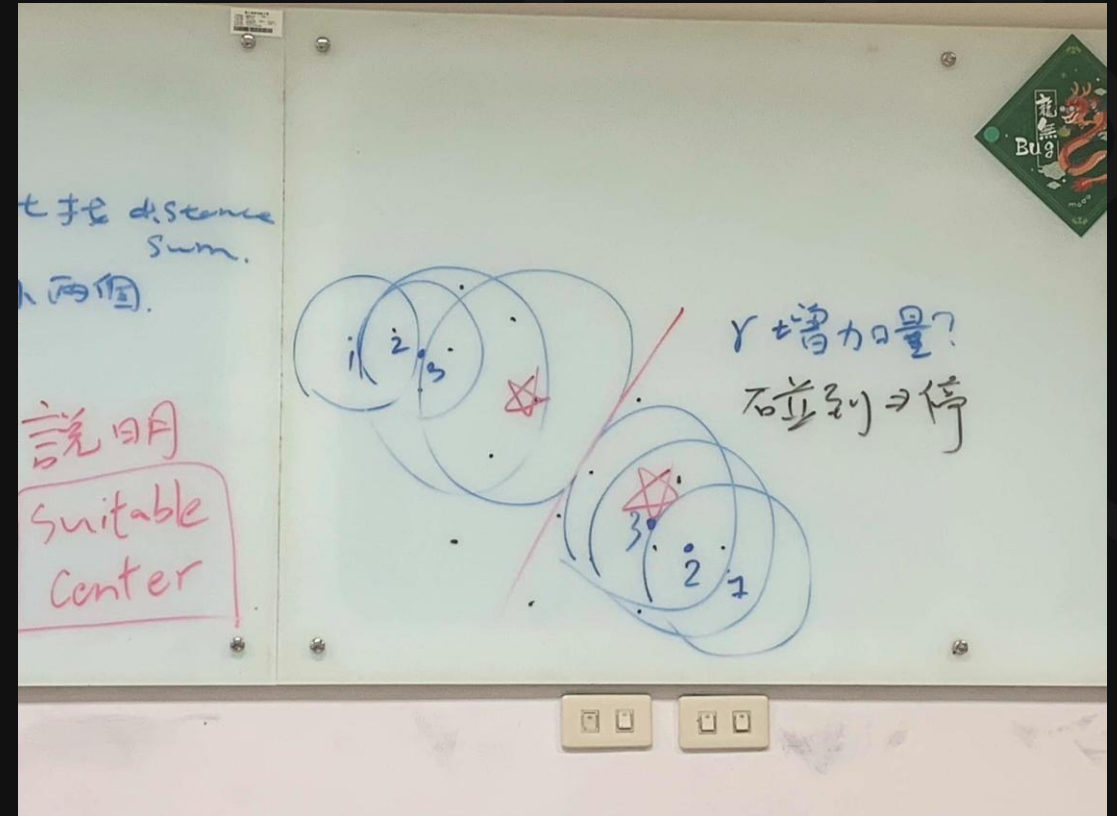 比找 distance
sum.
小 兩個.
說明
Suitable
Center
1
2
3
r 增加量?
碰到 → 停
3
2
1
龍無
Bug
moo